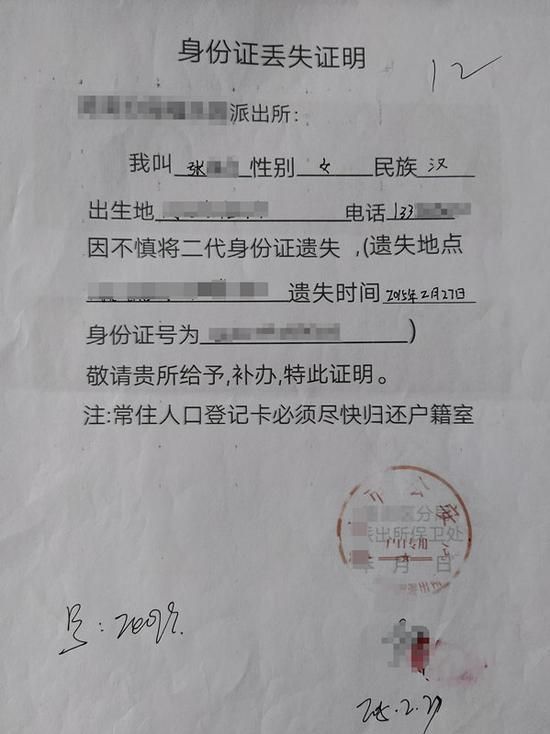 身份证丢失证明
12
派出所:
我叫 张 性别 女 民族 汉
出生地 电话 133
因不慎将二代身份证遗失 ,(遗失地点
遗失时间 2015年2月27日
身份证号为 )
敬请贵所给予,补办,特此证明。
注:常住人口登记卡必须尽快归还户籍室
区分局
派出所保卫处
户口专用
年 月 日